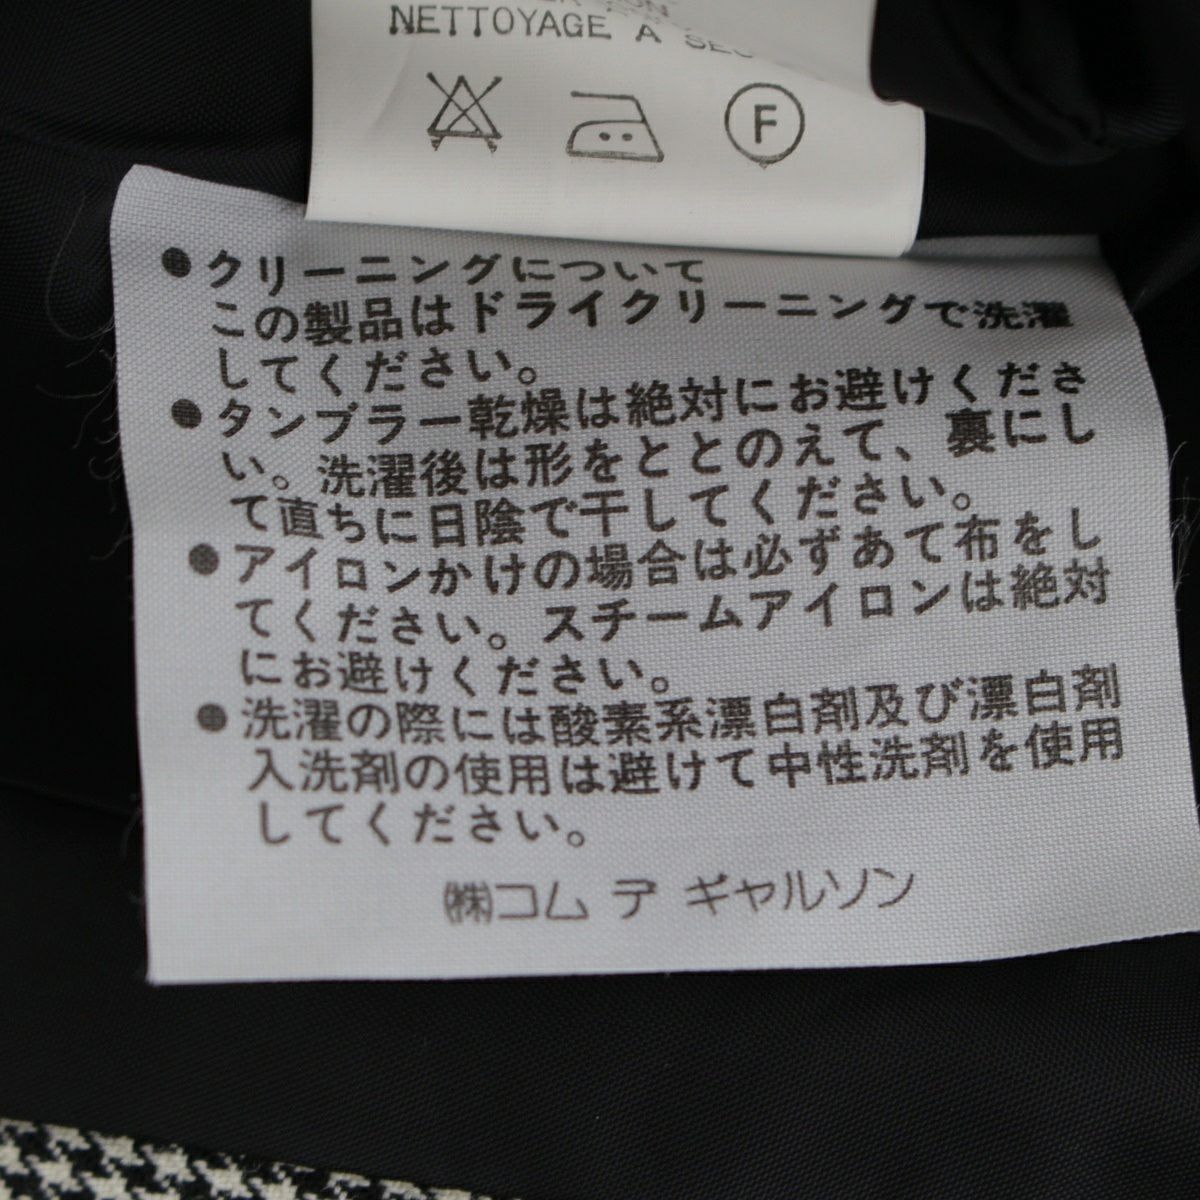 NETTOYAGE A SEC
F
●クリーニングについて
この製品はドライクリーニングで洗濯
してください。
●タンブラー乾燥は絶対にお避けくださ
い。洗濯後は形をととのえて、裏にし
て直ちに日陰で干してください。
●アイロンかけの場合は必ずあて布をし
てください。スチームアイロンは絶対
にお避けください。
●洗濯の際には酸素系漂白剤及び漂白剤
入洗剤の使用は避けて中性洗剤を使用
してください。
㈱コム デ ギャルソン